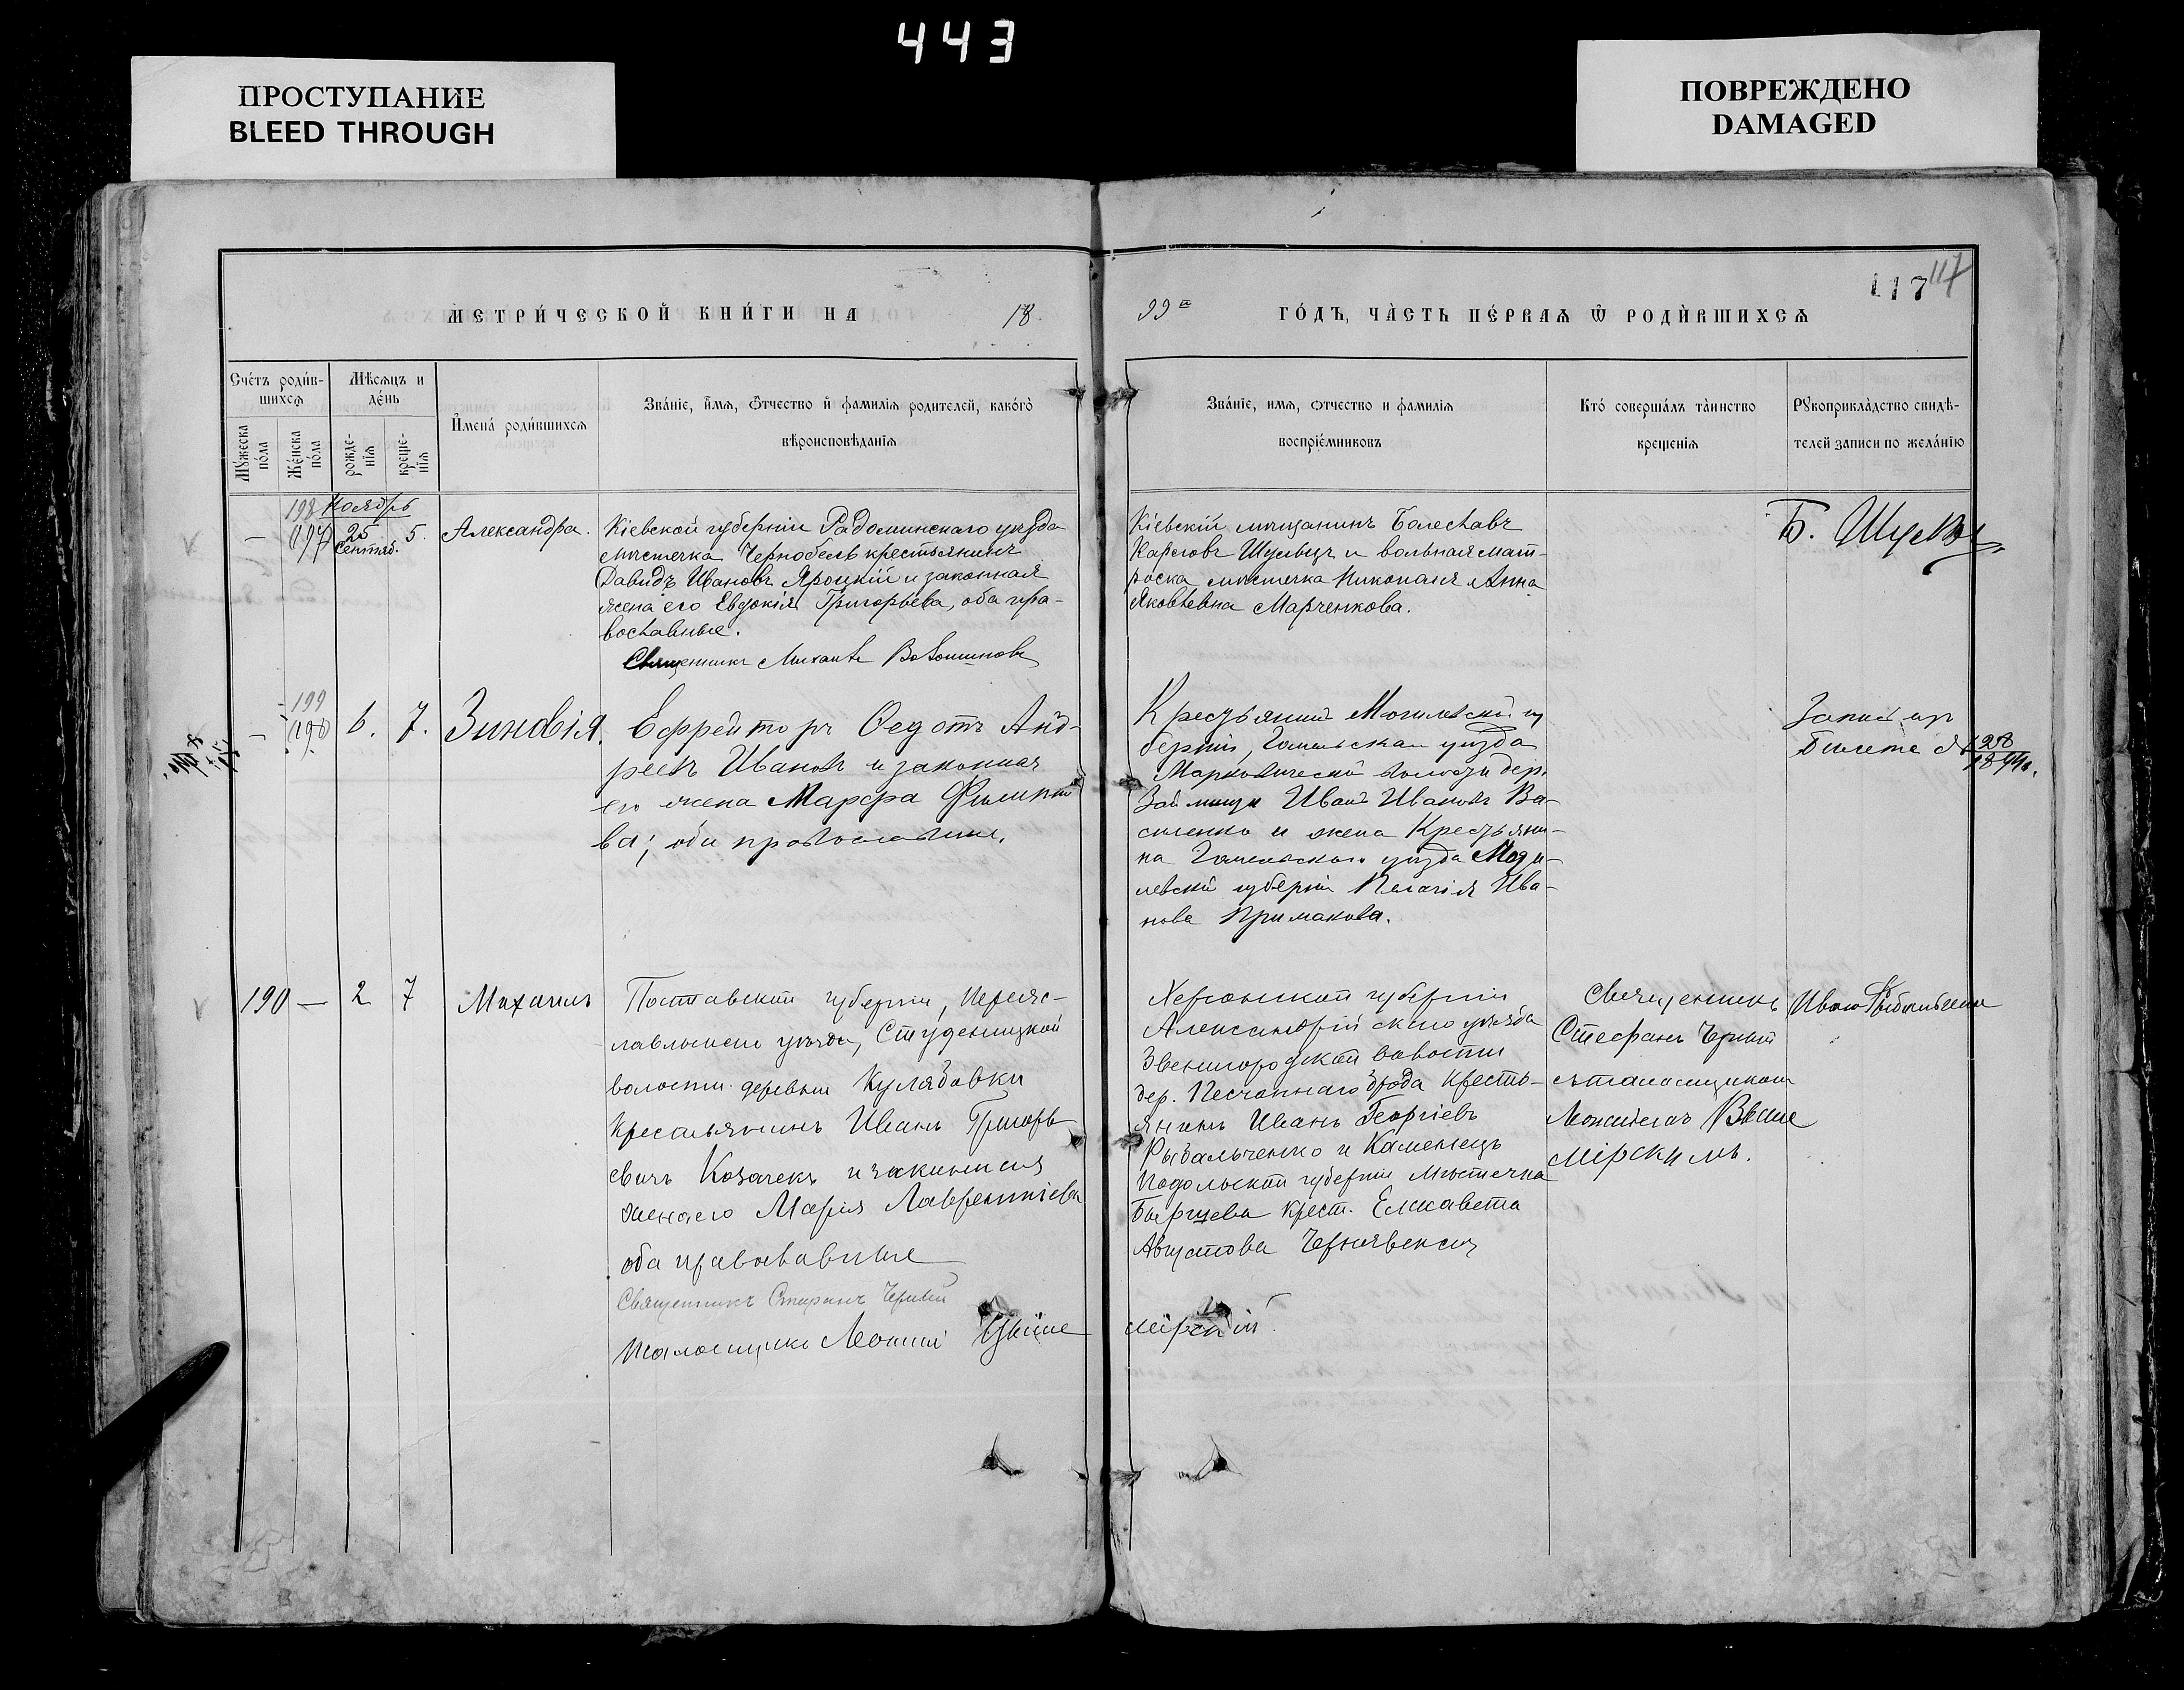 443
ПРОСТУПАНИЕ
BLEED THROUGH
ПОВРЕЖДЕНО
DAMAGED
117
117
МЕТРИ́ЧЕСКОЙ КНИ́ГИ НА 18
99 ГО́ДЪ, ЧА́СТЬ ПЕ́РВАѦ Ѿ РОДИ́ВШИХСѦ
Сче́тъ роди́в-
шихсѧ
Мѣ́сѧцъ и
де́нь
Му́жеска
по́ла
Же́нска
по́ла
рожде-
нїѧ
креще-
нїѧ
И҆мена̀ роди́вшихсѧ
Зва́нїе, и҆́мѧ, ѻ҆́тчество и҆ фамилїѧ родителей, како́гѡ
вѣроисповѣ́данїѧ
Зва́нїе, имѧ, ѻтчество и фамилїѧ
воспрїе́мниковъ
Кто̀ соверша́лъ та́инство
крещенїѧ
Рꙋкоприкла́дство свидѣ́-
телей записи по жела́нїю
198 Ноябрь
— 197 25 5. Александра.
Сентяб.
Кіевской губерніи Радомысльскаго уѣзда
мѣстечка Чернобель крестьянинъ
Давидъ Ивановъ Яроцкій и законная
жена его Евдокія Григорьева, оба пра-
вославные.
Священникъ Михаилъ
Кіевскій мѣщанинъ Болеславъ
Карловъ Шульцъ и вольная мат-
роска мѣстечка Никополя Анна
Яковлевна Марченкова.
Б. Шульцъ
199
— 198 6. 7. Зиновія.
Ефрейторъ Ѳедотъ Анд-
реевъ Ивановъ и законная
его жена Марѳа Филиппо
ва; оба православные.
Крестьянинъ Могилевской гу
берніи, Гомельскаго уѣзда
Марковической волости дер.
Иванъ Ивановъ Ва-
силенко и жена Крестьяни-
на Гомельскаго уѣзда Моги-
левской губерніи Пелагія Ива-
нова Примакова.
Запись пр
билета № 128
1899.
190 — 2 7 Михаилъ
Полтавской губерніи, Переяс-
лавльскаго уѣзда, Студеницкой
волости деревни Кулябовки
Крестьянинъ Иванъ Григорь
евичъ Козачекъ и законная
жена его Марія Лаврентіева
оба православные
Священникъ Стефанъ Черный
Псаломщикъ Выше
мірскій.
Херсонской губерніи
Александрійскаго уѣзда
Звенигородской волости
дер. Песчаннаго брода Кресть-
янинъ Иванъ Георгіевъ
Рыбальченко и Каменецъ
Подольской губерніи Мѣстечка
крест. Елисавета
Августова Чернявская
Священникъ
Стефанъ Черный
съ псаломщикомъ
Выше
мірскимъ.
Иванъ Рыбальченко